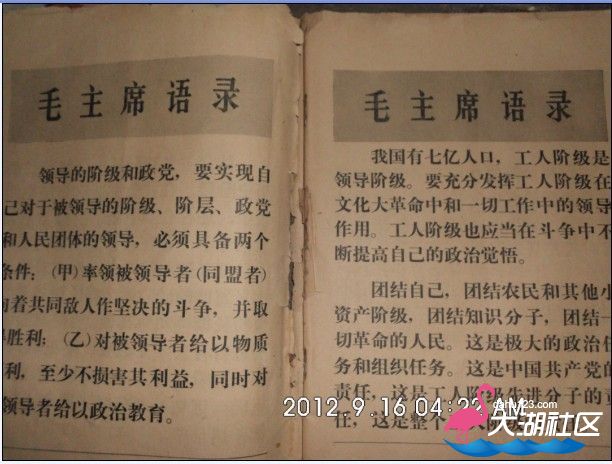 毛主席语录
领导的阶级和政党，要实现自
己对于被领导的阶级、阶层、政党
和人民团体的领导，必须具备两个
条件：（甲）率领被领导者（同盟者）
向着共同敌人作坚决的斗争，并取
得胜利；（乙）对被领导者给以物质
利，至少不损害其利益，同时对
领导者给以政治教育。
毛主席语录
我国有七亿人口，工人阶级是
领导阶级。要充分发挥工人阶级在
文化大革命中和一切工作中的领导
作用。工人阶级也应当在斗争中不
断提高自己的政治觉悟。
团结自己，团结农民和其他小
资产阶级，团结知识分子，团结一
切革命的人民。这是极大的政治任
务和组织任务。这是中国共产党的
责任，这是工人阶级先进分子的责
任，这是整个工人阶级
2012.9.16 04:22 AM
dahu123.com
大湖社区